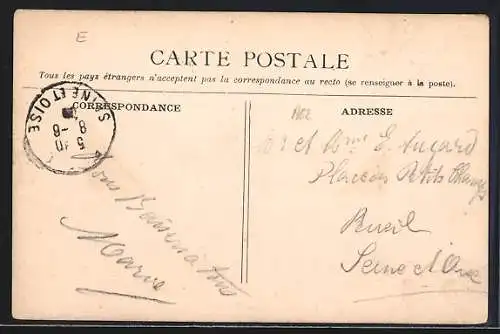 E
CARTE POSTALE
Tous les pays étrangers n'acceptent pas la correspondance au recto (se renseigner à la poste).
CORRESPONDANCE
SEINE ET OISE
8 -8
5 40
Bons Baisers à tous
Marie
1902
ADRESSE
Mr et Mme E. Augard
Place des Petits Champs
Rueil
Seine et Oise